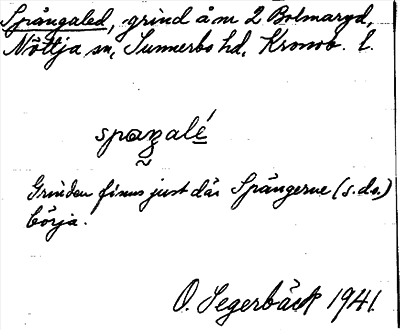 Spångaled, grind å m 2 Bolmaryd,
Nöttja sn, Sunnerbo hd, Kronob. l.
Grinden finns just där Spångerne (s.d.o.)
börja.
O. Segerbäck 1941.